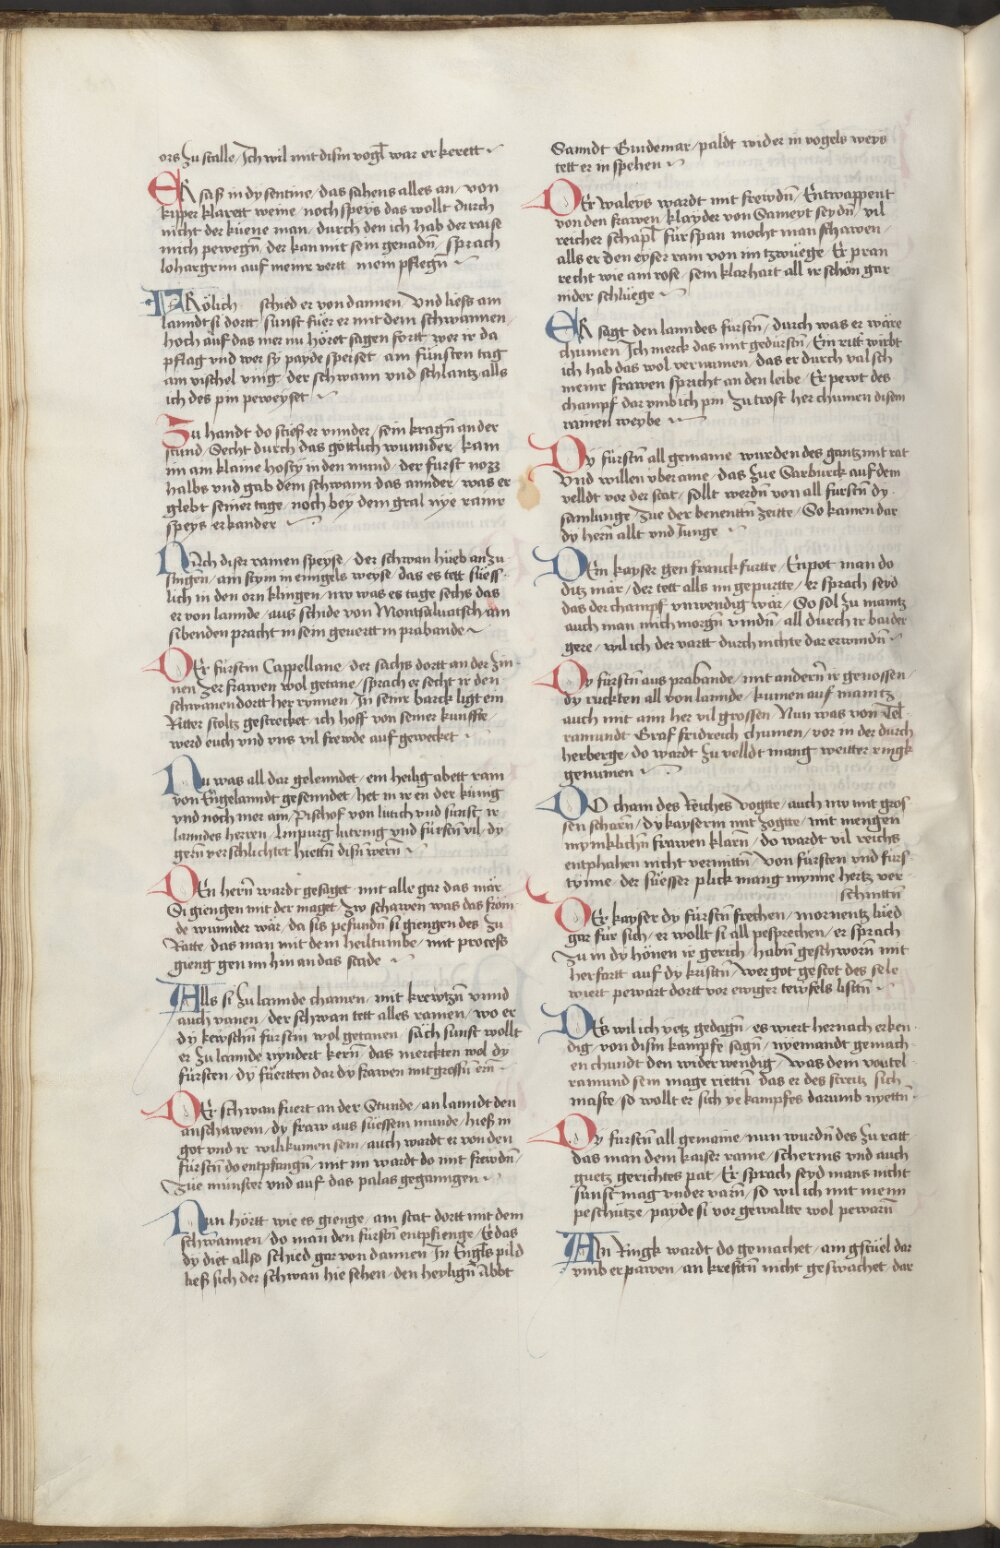 ors zu stalle / Ich wil mit dism vogl war er kerett
ER saß in dy sentine / das sahens alles an / von
kipper klarett weine / noch speys das wollt durch
nicht der küene man / durch den ich hab der raise
mich pewegn / der kan mit sein genadn / sprach
lohargrim auf meiner vertt mein pflegn
FRölich schied er von dannen / Vnd liess am
lanndt si dortt / sunst fuer er mit dem schwannen
hoch auf das mer nu höret sagen fortt / wer ir da
pflag vnd wer sy payde speiset am fünften tag
am vischel ving / der schwann vnd schlantz alls
ich des pin peweyset
Zu handt do stieß er vnnder / sein kragn an der
stund / Secht durch das göttlich wunnder / kam
im am klaine hosty in den mund / der fürst nozz
halbs vnd gab dem schwann das annder / was er
glebt seiner tage / noch bey dem gral nye rainr
speys erkander
NAch diser rainen speyse / der schwan hueb an zu
singen / am stym in enngels weyse / das es tett süess
lich in den orn klingen / nw was es tage sechs das
er von lannde / aus schide von Montsaluatsch am
sibenden pracht in sein geuertt in prabande
DEr fürstin Cappellane / der sachs dortt an der zin
nen / Zer frawen wol getane / sprach er secht ir den
schwanen dortt her rynnen / In seinr barck ligt ein
Ritter stoltz gestrecket / ich hoff von seiner kunffte /
werd euch vnd vns vil frewde auf gewecket
Nu was all dar gelenndet / ein heilig abett rain
von Engelanndt gesenndet / het in ir en der künig
vnd noch mer am / Pischof von lutich vnd sunst ir
lanndes herren / limpurg lutring vnd fürstn vil / dy
gern verschlichtet hiettn disn wern
DEn hern wardt gesaget / mit alle gar das mär
Si giengen mit der maget / zw schawen was das fröm
de wunnder wär / da sus pefundn si giengen des zu
Ratte / das man mit dem heiltumbe / mit process
gieng gen im hin an das stade
Alls si zu lannde chamen / mit krewtzn vnnd
auch vanen / der schwan tett alles ramen / wo er
dy kewschn fürstin wol getanen / sach sunst wollt
er zu lannde nyndert kern / das merckten wol dy
fürsten / dy füertten dar dy frawen mit grossn ern
DEr schwan fuert an der Stunde / an lanndt den
anschawein / dy fraw aus süessem munde / hieß in
got vnd ir willkumen sein / auch wardt er von den
fürstn do entpfangn / mit im wardt do mit frewdn /
Zue münster vnd auf das palas geganngen
Nun hörtt wie es gienge / am stat dortt mit dem
schwannen / do man den fürstn entpfienge / E das
dy diet allso schied gar von dannen / In Engls pild
ließ sich der schwan hie sehen / den heylign Abbt
Sanndt Guidemar / paldt wider in vogels weys
tett er in spehen
DEr waleys wardt mit frewdn / Entwappent
von den frawen / klayder von Sameyt seydn / vil
reicher schapl fürspan mocht man schawen /
alls er den eyser ram von im tzwüege / Er pran
recht wie am rose / sein klarhait all ir schön gar
nider schlüege
ER sagt den lanndes fürstn / durch was er wäre
chumen / Ich merck das mit gedürstn / Ein ritt wirbt
ich hab das wol vernumen / das er durch valsch
meinr frawen spricht an den leibe / Er pewt des
champf darumb ich pin / zu trost her chumen disem
rainen weybe
Dy fürstn all gemaine wurden des gantz mit rat
Vnd willen vber aine / das zue Sarburck auf dem
velldt vor der stat / sollt werdn von all fürstn dy
samlunge / zue der benenttn zeitte / So kamen dar
dy hern allt vnd Junge
DEm kayser gen franckfurtte / Enpot man do
ditz mär / der tett alls im gepurtte / er sprach seyd
das der champf vnwendig wär / So sol zu maintz
auch man mich morgn vindn / all durch ir baider
gere / wil ich der vartt durch nichte dar erwindn
Dy fürstn aus prabande / mit andern ir genossen /
dy ruckten all von lannde / kumen auf maintz
auch mit ainn her vil grossen / Nun was von Tel
ramundt Graf fridreich chumen / vor in der durch
herberge / do wardt zu velldt mang weitter ringk
genumen
DO cham des Reiches vogtte / auch nw mit gros
sen scharn / dy kayserin mit zogtte / mit mengen
mynniklichn frawen klarn / do wardt vil reichs
entphahen nicht vermittn / von fürsten vnd fürs
tynne / der süesser plick mang mynne hertz ver
schnittn
DEr kayser dy fürstn frechen / mornentz lued
gar für sich / er wollt si all pesprechen / er sprach
zu in dy hönen ir gerich / habn geschworn mit
herfartt auf dy kristn / wer got gestet des sele
wiert pewart dortt vor ewiger tewfels listn
DEs wil ich yetz gedagn / es wiert hernach erken
dig / von dism kampfe sagn / nyemandt gemach
en chundt den widerwendig / Was dem von tel
ramund sein mage riettn / das er des streitz sich
maste / so wollt er sich ye kampfes darumb nyettn
Dy fürstn all gemaine / nun wurdn des zu ratt
das man dem kaiser raine / scherms vnd auch
guetz gerichtes pat / Er sprach seyd mans nicht
sunst mag vnder varn / so wil ich mit meim
peschütze / payde si vor gewaltte wol pewarn
AIn Ringk wardt do gemachet / am gstüel dar
vmb erpawen / an krefftn nicht geswachet / dar